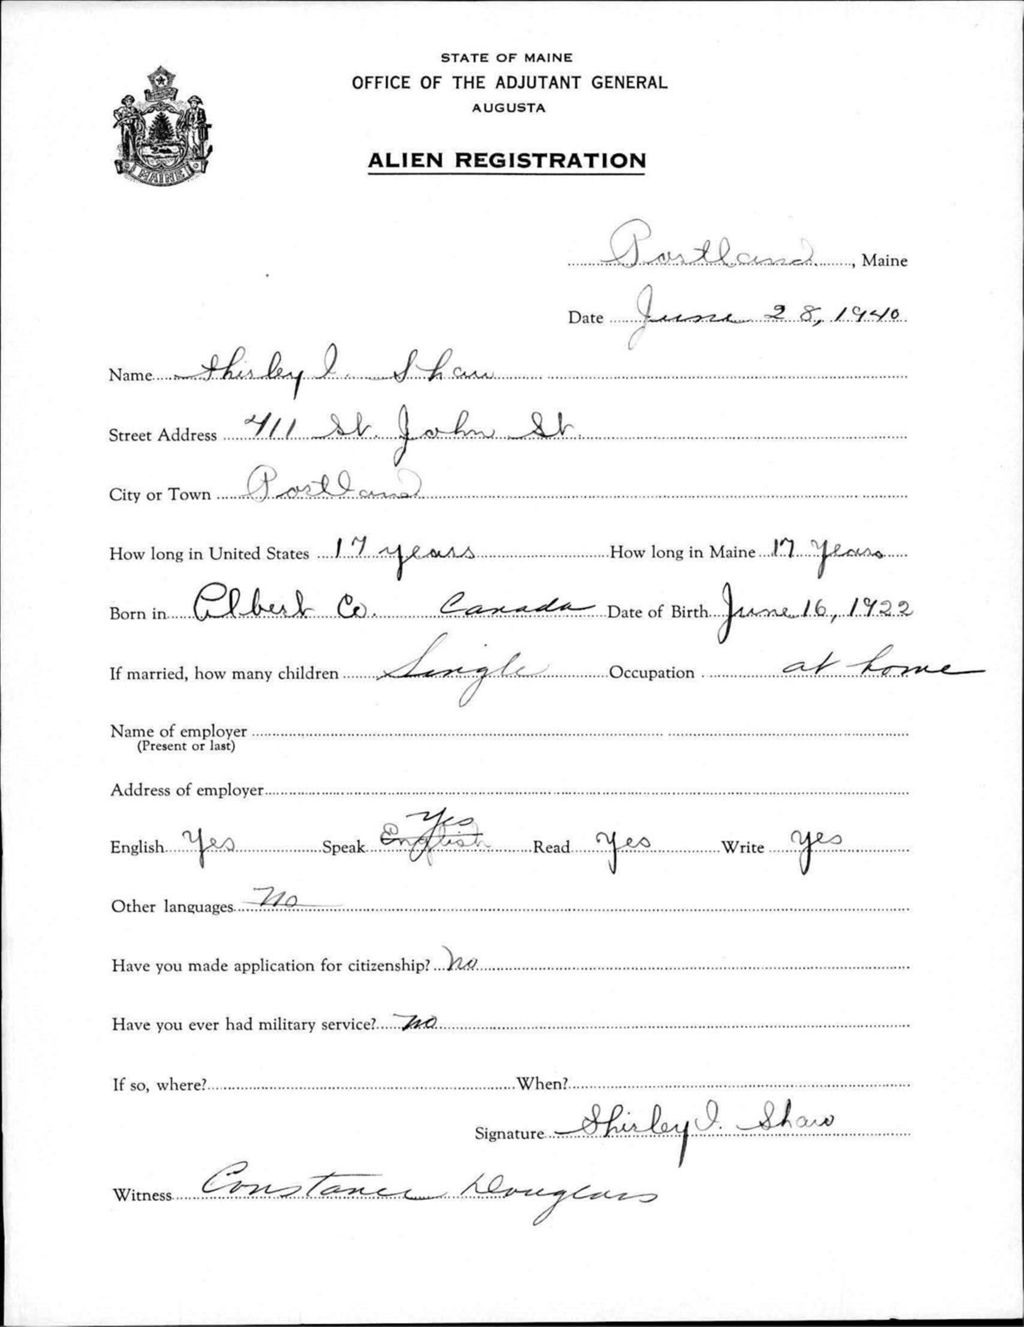 STATE OF MAINE
OFFICE OF THE ADJUTANT GENERAL
AUGUSTA
ALIEN REGISTRATION
MAINE
Portland, Maine
Date June 28, 1940
Name Shirley I. Shaw
Street Address 411 St. John St.
City or Town Portland
How long in United States 17 years How long in Maine 17 years
Born in Albert Co. Canada Date of Birth June 16, 1922
If married, how many children Single Occupation at home
Name of employer
(Present or last)
Address of employer
Yes
English Yes Speak English Read Yes Write Yes
Other languages No
Have you made application for citizenship? No
Have you ever had military service? No
If so, where? When?
Signature Shirley I. Shaw
Witness Constance Douglass